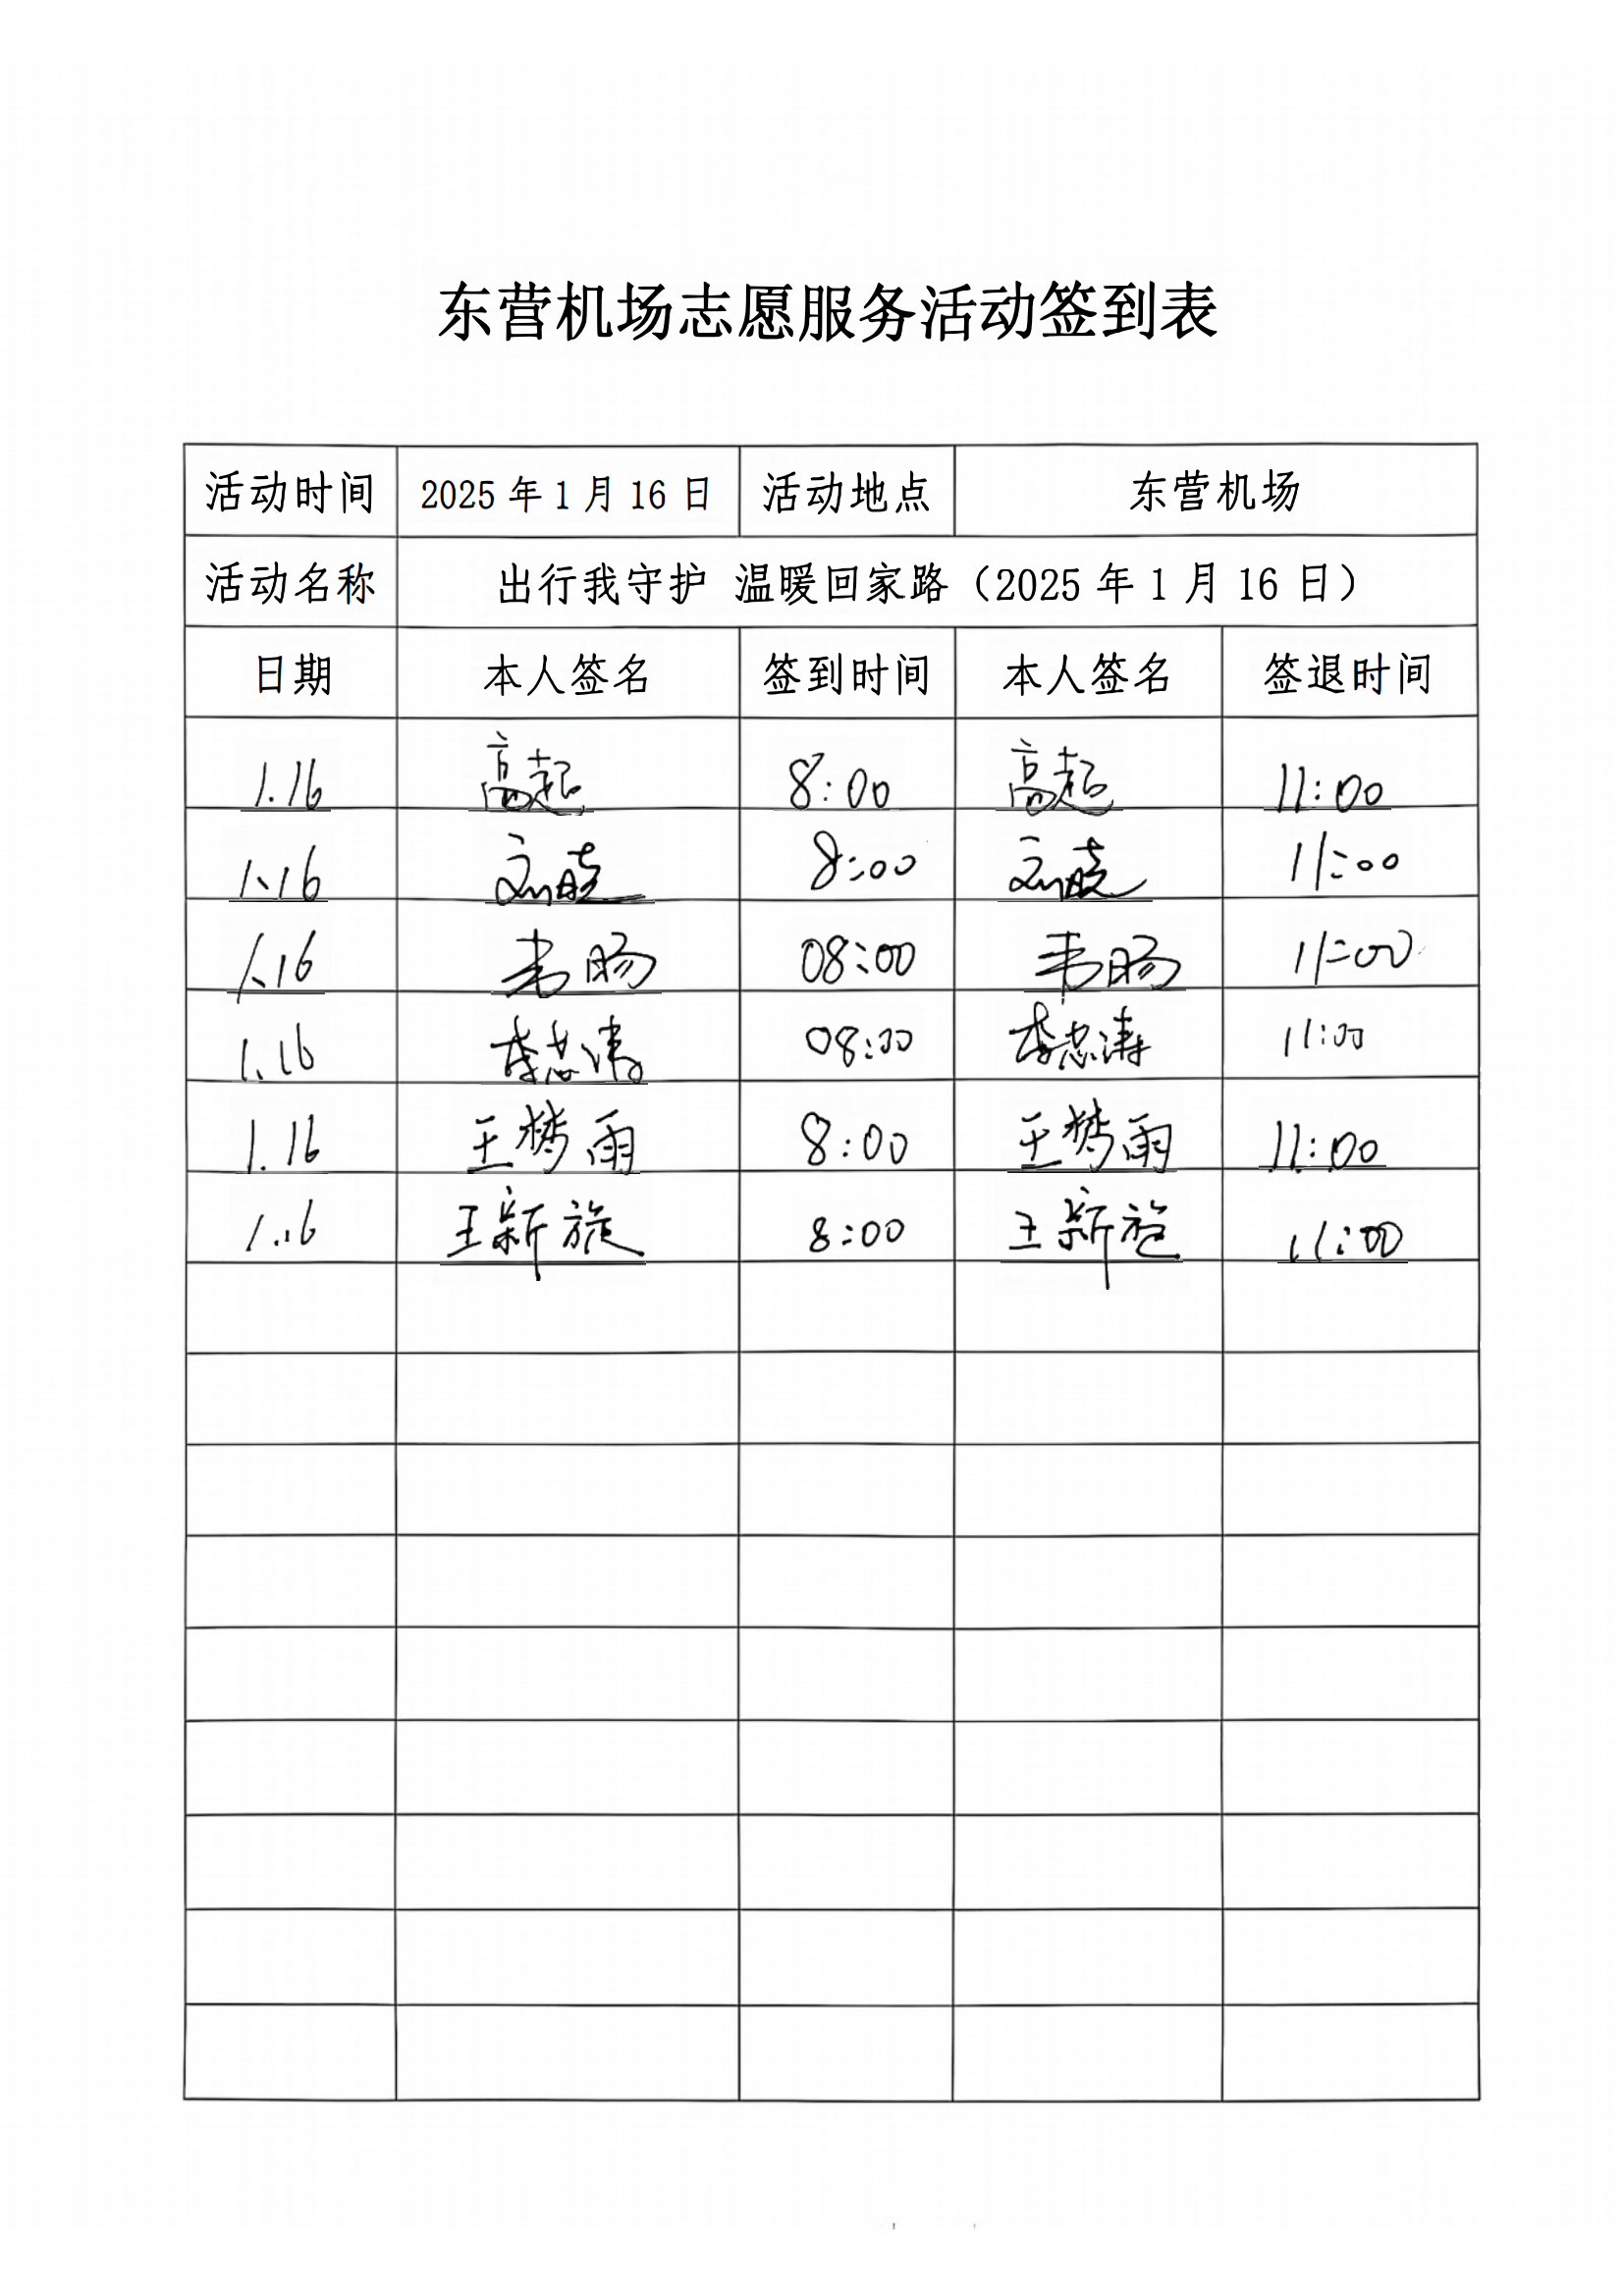 东营机场志愿服务活动签到表
活动时间 2025年1月16日 活动地点 东营机场
活动名称 出行我守护 温暖回家路（2025年1月16日）
日期 本人签名 签到时间 本人签名 签退时间
1.16 高起 8:00 高超 11:00
1.16 刘晓 8:00 刘晓 11:00
1.16 韦旸 08:00 韦旸 11:00
1.16 李志涛 08:00 李志涛 11:00
1.16 王梦雨 8:00 王梦雨 11:00
1.16 王新旋 8:00 王新旋 11:00